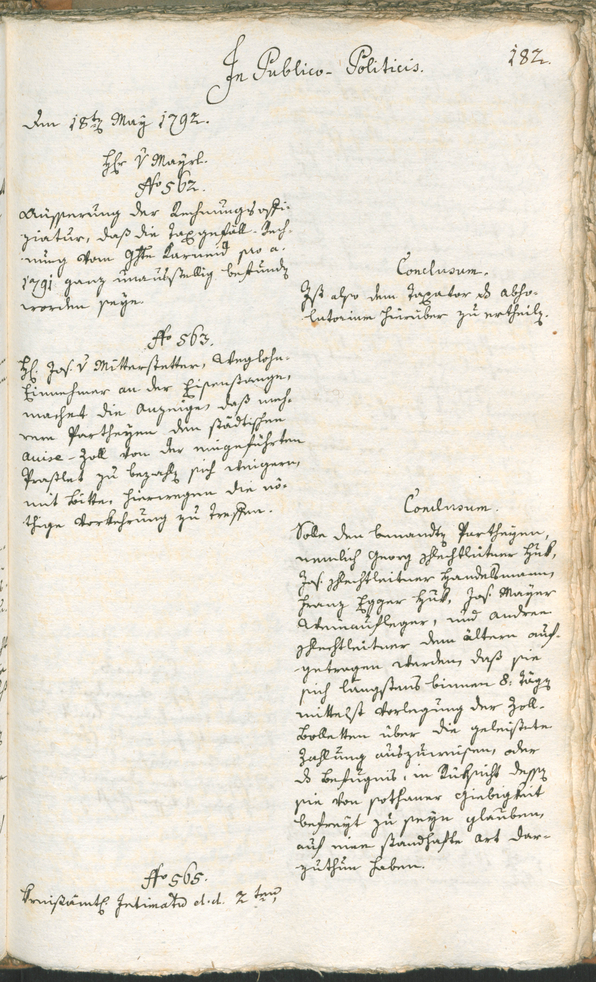 In Publico-Politicis.
182.
Den 18ten May 1792.
H: v Mayrl.
No 562.
Äusserung der Rechnungsoffi-
ziatur, daß die Taxgefäll-Rech-
nung vom Ghte Karneid pro a.
1791 ganz unausstellig befunden
worden seye.
Conclusum.
Ist also dem Taxator das Abso-
lutorium hierüber zu ertheilen.
No 563.
H: Jos. v Mitterstetter, Weglohn-
Einnehmer an der Eisenstange,
machet die Anzeige, daß meh-
rere Partheyen den städtischen
Zoll von der eingeführten
Praschlet zu bezahlen sich weigern,
mit Bitte, hierwegen die nö-
thige Vorkehrung zu treffen.
Conclusum.
Solle den benandten Partheyen,
nemlich Georg Plechtleitner Hub,
Jos. Plechtleitner Handelsmann,
Franz Egger Hub, Jos. Mayer
Weinaufleger, und Andree
Plechtleitner dem ältern auf-
getragen werden, daß sie
sich längstens binnen 8: Tägen
mittelst Vorlegung der Zoll-
Bolletten über die geleistete
Zahlung auszuweisen, oder
das Befugnis, in Rücksicht dessen
sie von sothaner Giebigkeit
befreyt zu seyn glauben,
auf eine standhafte Art dar-
zuthun haben.
No 565.
Kreisämtl. Intimatum d.d. 2ten